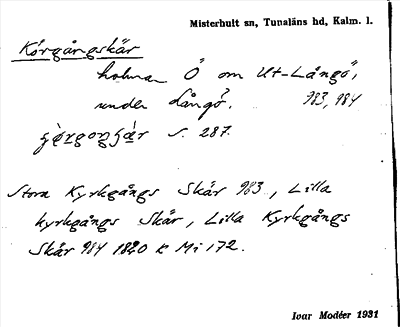 Misterhult sn, Tunaläns hd, Kalm. l.
Körgångskär
holmar Ö om Ut-Långö,
under Långö. 983, 984
s. 287.
Stora Kyrkgångs Skär 983, Lilla
kyrkgångs Skär, Lilla Kyrkgångs
Skär 984 1820 k Mi 172.
Ivar Modéer 1931